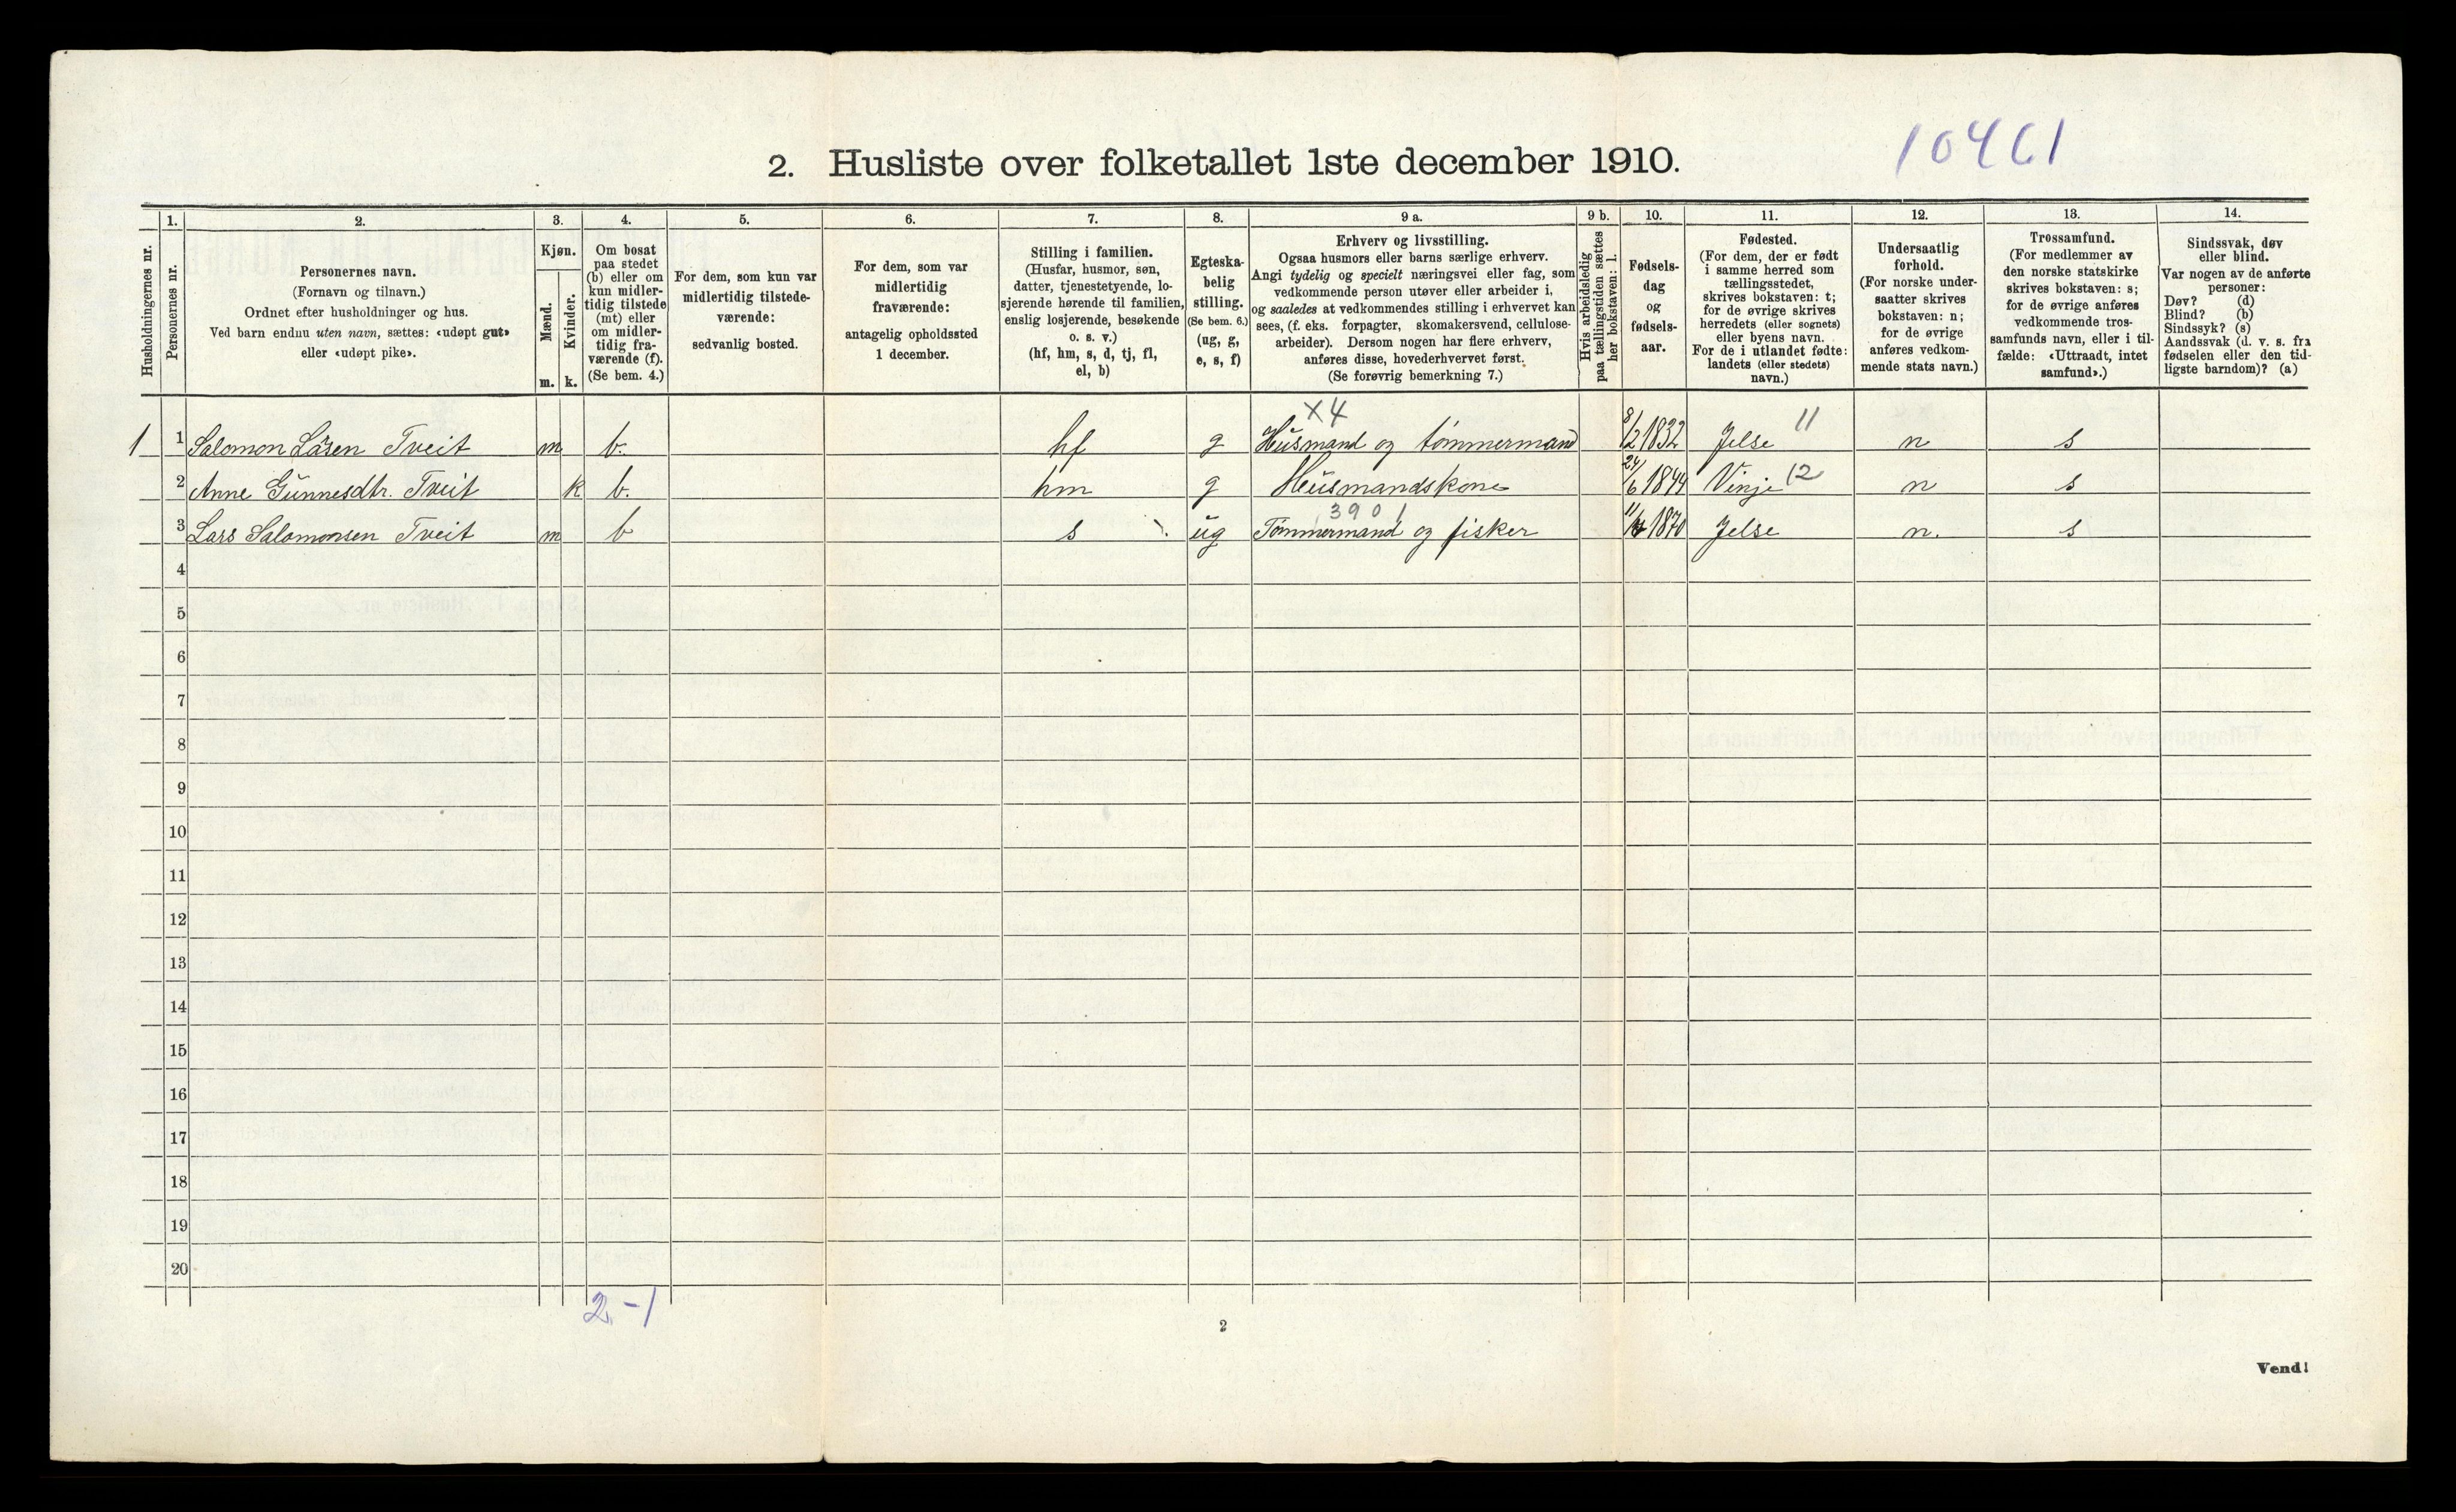 10461
2. Husliste over folketallet 1ste december 1910.
Husholdningernes nr.
1.
Personernes nr.
2.
Personernes navn.
(Fornavn og tilnavn.)
Ordnet efter husholdninger og hus.
Ved barn endnu uten navn, sættes: «udøpt gut»
eller «udøpt pike».
3.
Kjøn.
Mænd.
Kvinder.
m. k.
4.
Om bosat
paa stedet
(b) eller om
kun midler-
tidig tilstede
(mt) eller
om midler-
tidig fra-
værende (f).
(Se bem. 4.)
5.
For dem, som kun var
midlertidig tilstede-
værende:
sedvanlig bosted.
6.
For dem, som var
midlertidig
fraværende:
antagelig opholdssted
1 december.
7.
Stilling i familien.
(Husfar, husmor, søn,
datter, tjenestetyende, lo-
sjerende hørende til familien,
enslig losjerende, besøkende
o. s. v.)
(hf, hm, s, d, tj, fl,
el, b)
8.
Egteska-
belig
stilling.
(Se bem. 6.)
(ug, g,
e, s, f)
9 a.
Erhverv og livsstilling.
Ogsaa husmors eller barns særlige erhverv.
Angi tydelig og specielt næringsvei eller fag, som
vedkommende person utøver eller arbeider i,
og saaledes at vedkommendes stilling i erhvervet kan
sees, (f. eks. forpagter, skomakersvend, cellulose-
arbeider). Dersom nogen har flere erhverv,
anføres disse, hovederhvervet først.
(Se forøvrig bemerkning 7.)
9 b.
Hvis arbeidsledig
paa tællingstiden sættes
her bokstaven: l.
10.
Fødsels-
dag
og
fødsels-
aar.
11.
Fødested.
(For dem, der er født
i samme herred som
tællingsstedet,
skrives bokstaven: t;
for de øvrige skrives
herredets (eller sognets)
eller byens navn.
For de i utlandet fødte:
landets (eller stedets)
navn.)
12.
Undersaatlig
forhold.
(For norske under-
saatter skrives
bokstaven: n;
for de øvrige
anføres vedkom-
mende stats navn.)
13.
Trossamfund.
(For medlemmer av
den norske statskirke
skrives bokstaven: s;
for de øvrige anføres
vedkommende tros-
samfunds navn, eller i til-
fælde: «Uttraadt, intet
samfund».)
14.
Sindssvak, døv
eller blind.
Var nogen av de anførte
personer:
Døv? (d)
Blind? (b)
Sindssyk? (s)
Aandssvak (d. v. s. fra
fødselen eller den tid-
ligste barndom)? (a)
x4 11
1 1 Salomon Låsen Tveit m b. hf g Husmand og tømmermand 8/2 1832 Jelse n s
2 Anne Gunnesdtr. Tveit k b. hm g Husmandskone 24/6 1844 Vinje 12 n s
3901
3 Lars Salomonsen Tveit m b s ug Tømmermand og fisker 1870 Jelse n. s
4
5
6
7
8
9
10
11
12
13
14
15
16
17
18
19
20
2-1
2
Vend!